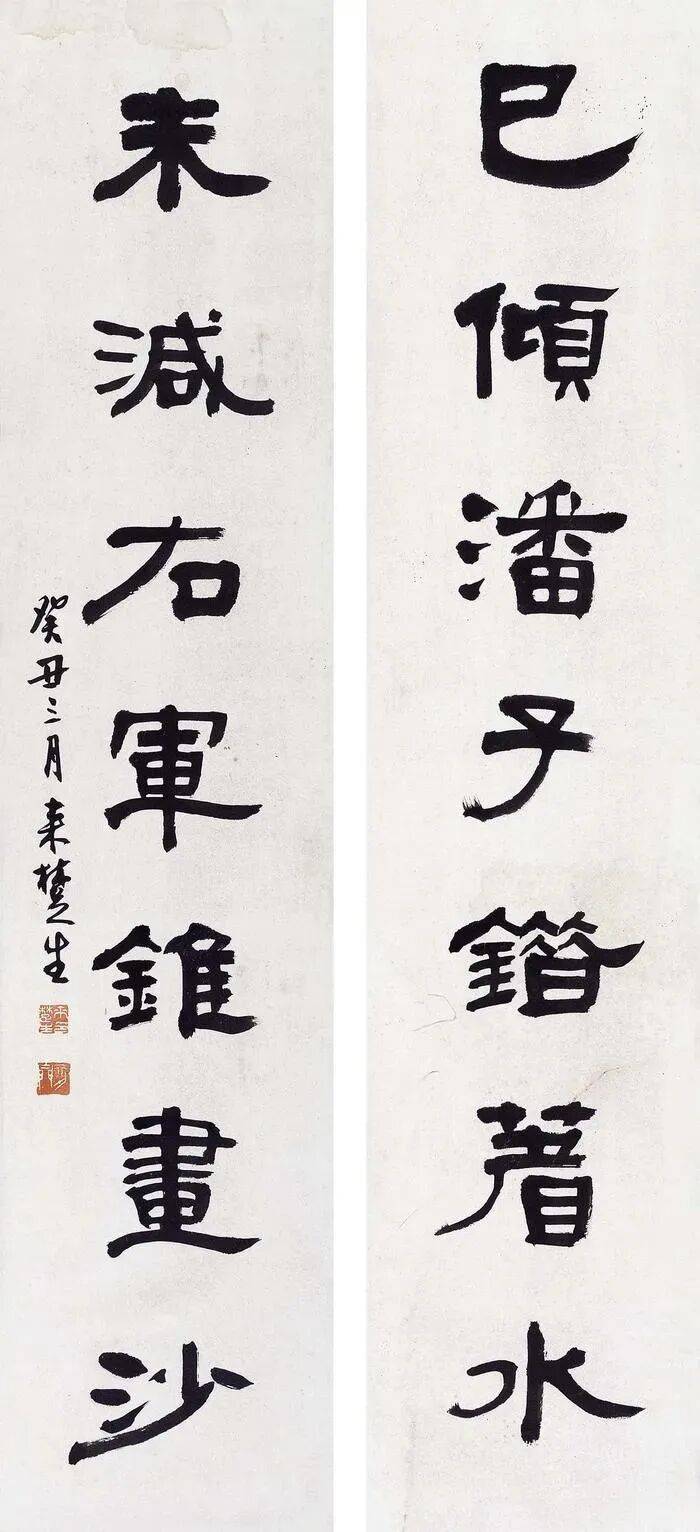 已傾潘子錯著水
未減右軍錐畫沙
癸丑三月来楚生